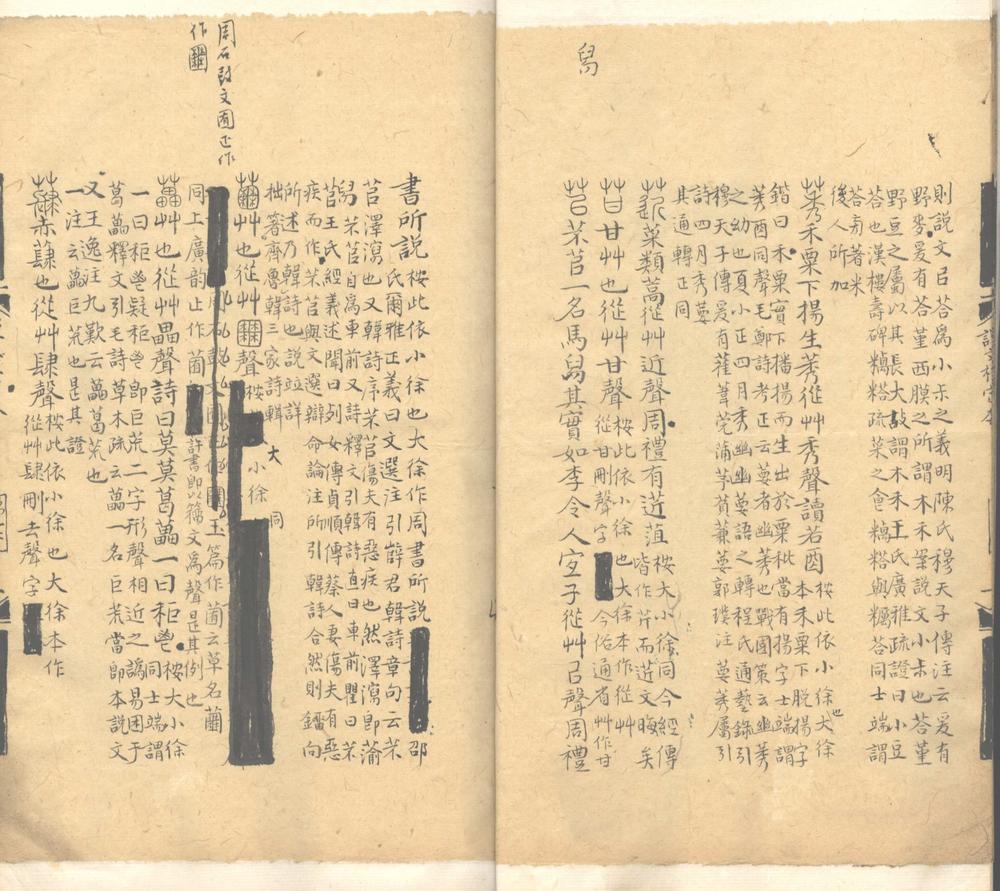 舄
則說文㠯荅爲小尗之義明陳氏穆天子傳注云爰有
野麥爰有荅堇西膜之所謂木禾箋說文小尗也荅堇
野豆之屬以其長大故謂木禾王氏廣雅疏證曰小豆
荅也漢樓壽碑糲䊦疏菜之食糲䊦與糲荅同士端謂
荅旁著米
後人所加
莠禾粟下揚生莠從艸秀聲讀若酉桉此依小徐也大徐
本禾粟下脫揚字士端謂
鍇曰禾粟實下播揚而生出於粟秕當有揚字
莠酉同聲毛鄭詩考正云葽者幽莠也戰國策云幽莠
之幼也夏小正四月秀幽幽葽語之轉程氏通藝錄引
穆天子傳爰有雚葦莞蒲茅萯蒹葽郭璞注葽莠屬引
詩四月秀葽
其通轉正同
菦菜類蒿從艸近聲周禮有菦菹桉大小徐同今經傳
皆作芹而菦文晦矣
苷甘艸也從艸甘聲桉此依小徐也大徐本作從艸
從甘刪聲字今俗通省艸作甘
苢芣苢一名馬舄其實如李令人宜子從艸㠯聲周禮
書所說桉此依小徐也大徐作周書所說邵
氏爾雅正義曰文選注引薛君韓詩章句云芣
苢澤瀉也又韓詩序芣苢傷夫有惡疾也然澤瀉卽蕍
舄芣苢自爲車前又詩釋文引韓詩直曰車前瞿曰芣
苢王氏經義述聞曰列女傳貞順傳蔡人妻傷夫有惡
疾而作芣苢與文選辯命論注所引韓詩合然則鎦向
所述乃韓詩也說竝詳
拙箸齊魯韓三家詩輯
周石鼓文囿正作
作
艸也從艸聲桉大小徐同
玉篇作䓕云草名
同上廣韵止作䓕許書卽以籀文爲聲是其例也
藟艸也從艸畾聲詩曰莫莫葛藟一曰秬鬯桉大小徐
同士端謂
一曰秬鬯疑秬鬯卽巨荒二字形聲相近之譌易困于
葛藟釋文引毛詩草木疏云藟一名巨荒當卽本說文
又王逸注九歎云藟葛荒也
一注云藟巨荒也是其證
赤蕼也從艸肆聲桉此依小徐也大徐本作
從艸肆刪去聲字